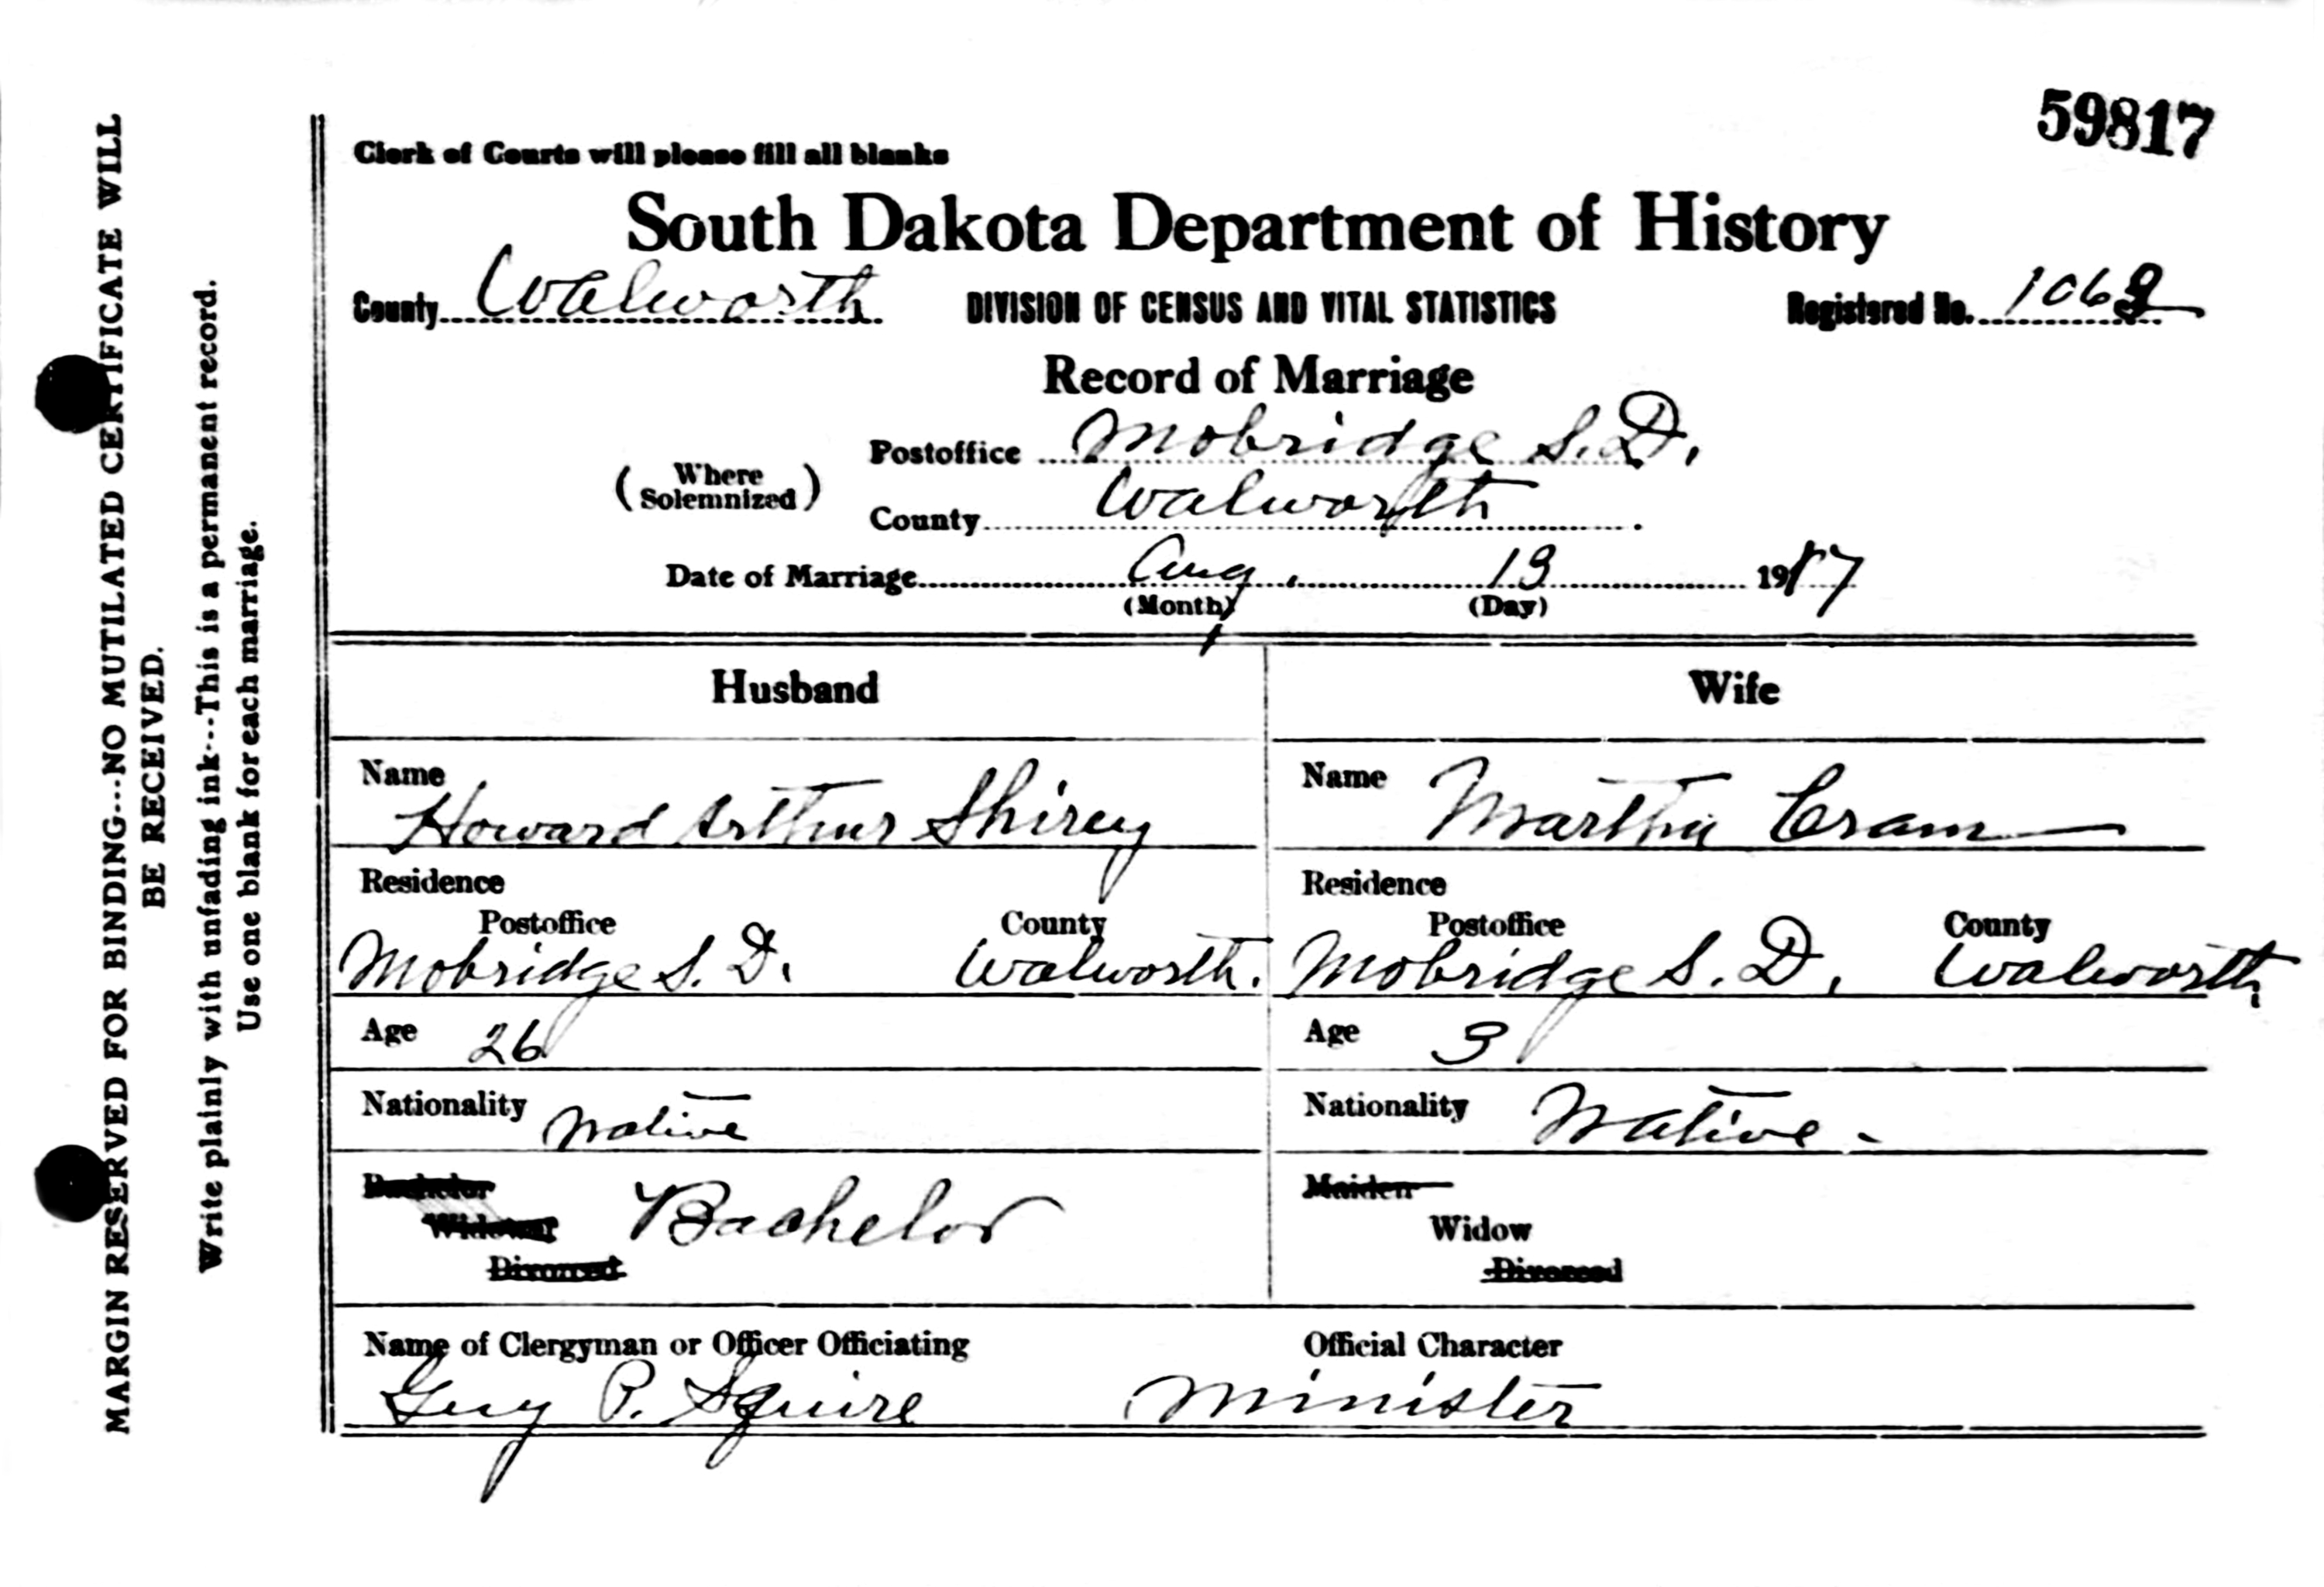 59817
Clerk of Courts will please fill all blanks
South Dakota Department of History
County Walworth DIVISION OF CENSUS AND VITAL STATISTICS Registered No.
Record of Marriage
(Where Solemnized) Postoffice Mobridge S.D.
County Walworth
Date of Marriage Aug. 13 1917
(Month) (Day)
Husband Wife
Name Name
Howard Arthur Shirey Martha Cram
Residence Residence
Postoffice County Postoffice County
Mobridge S. D. Walworth. Mobridge S. D. Walworth
Age 26 Age
Nationality Native Nationality Native -
Bachelor Maiden
Widower Bachelor Widow
Divorced Divorced
Name of Clergyman or Officer Officiating Official Character
Guy P. Squire Minister
MARGIN RESERVED FOR BINDING---NO MUTILATED CERTIFICATE WILL
BE RECEIVED.
Write plainly with unfading ink---This is a permanent record.
Use one blank for each marriage.